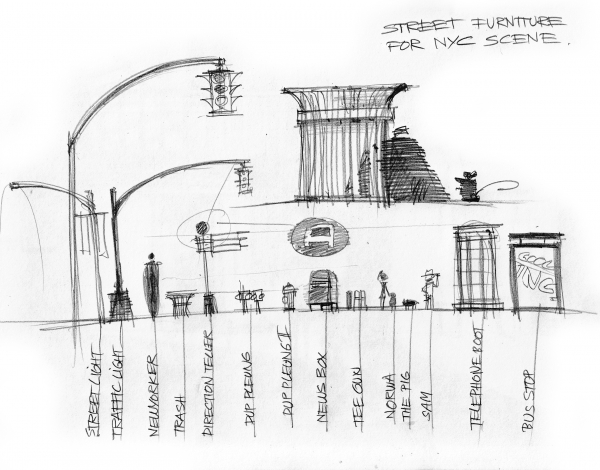 STREET FURNITURE
FOR NYC SCENE.
GOOD
ING
STREET LIGHT
TRAFFIC LIGHT
NEWYORKER
TRASH
DIRECTION TELLER
DUP PLEUNG
DUP PLEUNG II
NEWS BOX
TEE OUN
NORWA
THE PIG
SAM
TELEPHONE BOOT
BUS STOP